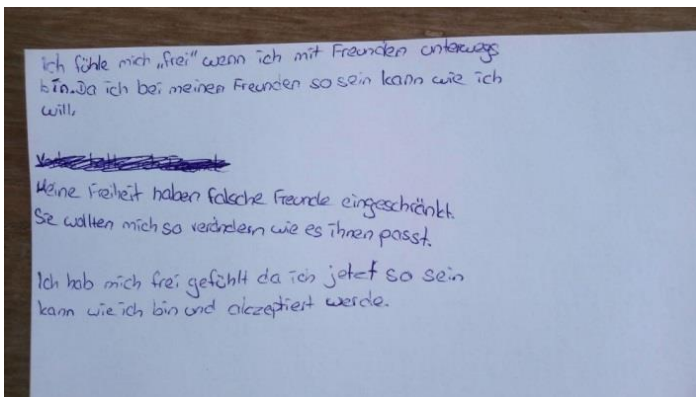 ich fühle mich „frei" wenn ich mit Freunden unterwegs
bin. Da ich bei meinen Freunden so sein kann wie ich
will,
Meine Freiheit haben falsche Freunde eingeschränkt.
Sie wollten mich so verändern wie es ihnen passt.
Ich hab mich frei gefühlt da ich jetzt so sein
kann wie ich bin und akzeptiert werde.